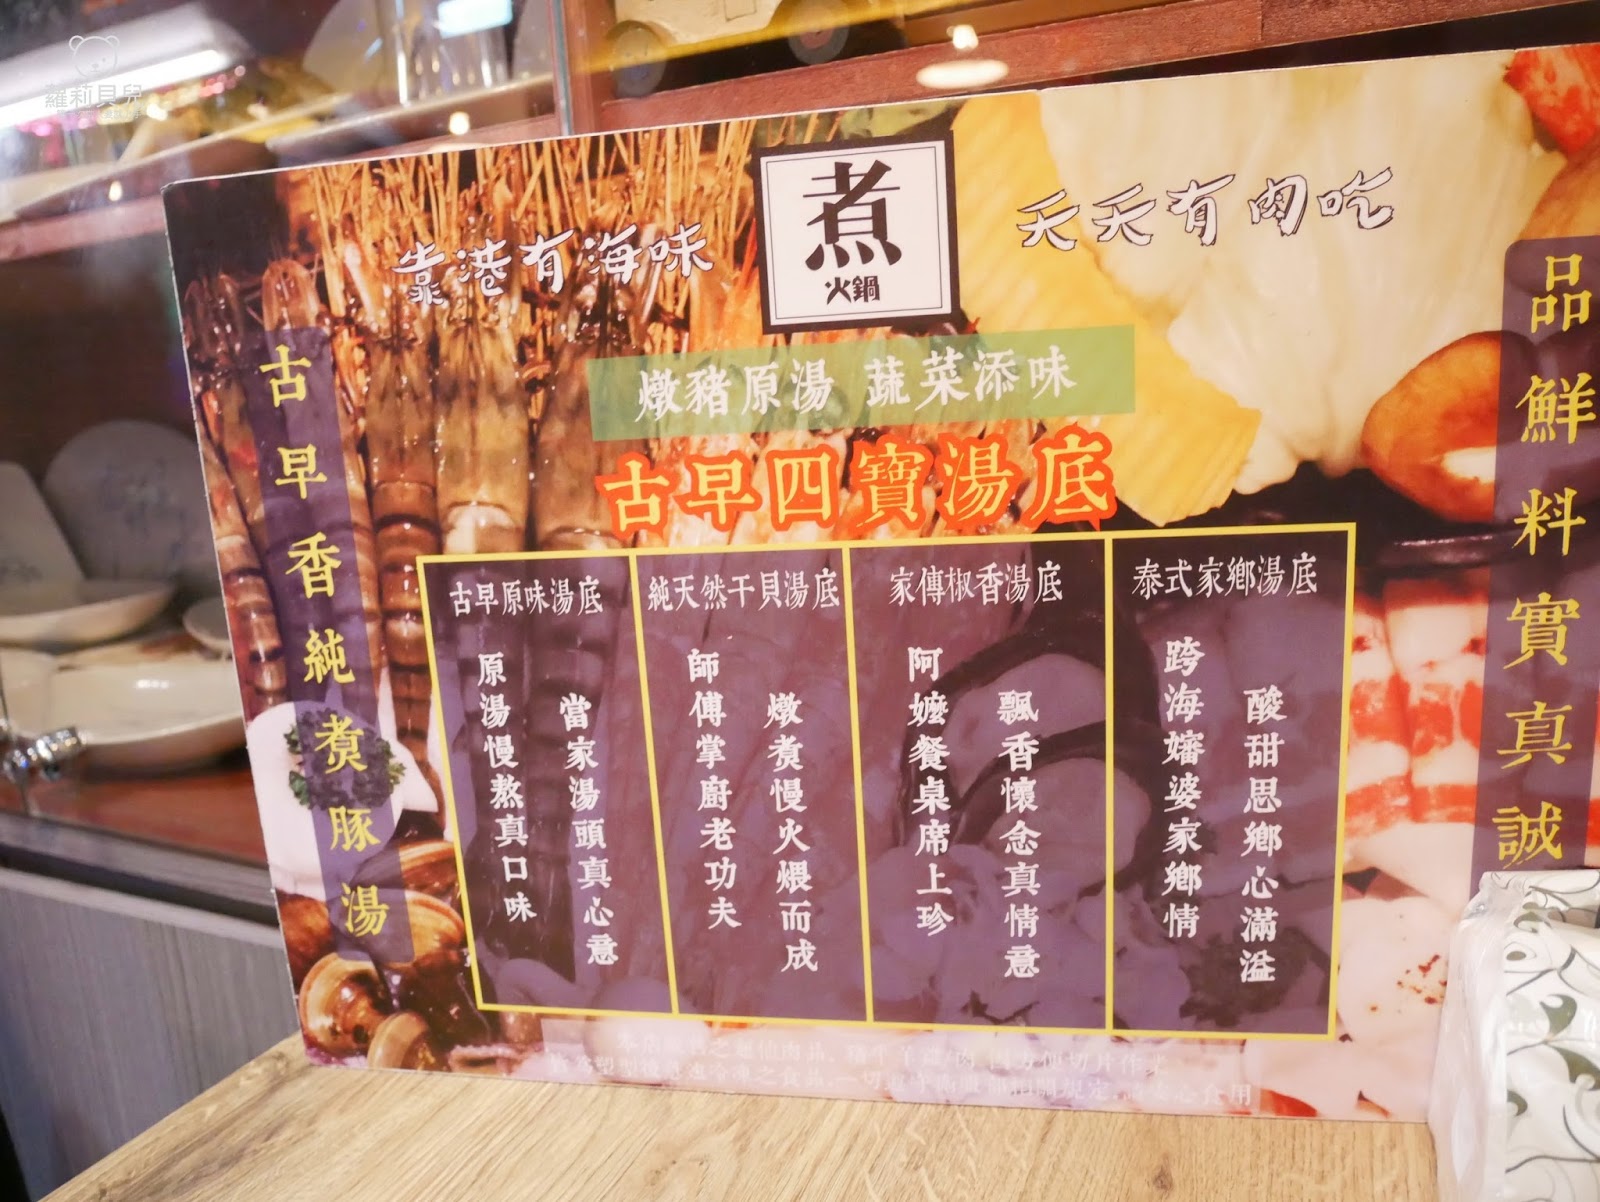 蘿莉貝兒
靠港有海味
煮
火鍋
天天有肉吃
燉豬原湯 蔬菜添味
古早四寶湯底
古早香純煮豚湯
品鮮料實真誠
古早原味湯底
當家湯頭真心意
原湯慢熬真口味
純天然干貝湯底
燉煮慢火煨而成
師傅掌廚老功夫
家傳椒香湯底
飄香懷念真情意
阿嬤餐桌席上珍
泰式家鄉湯底
酸甜思鄉心滿溢
跨海嬸婆家鄉情